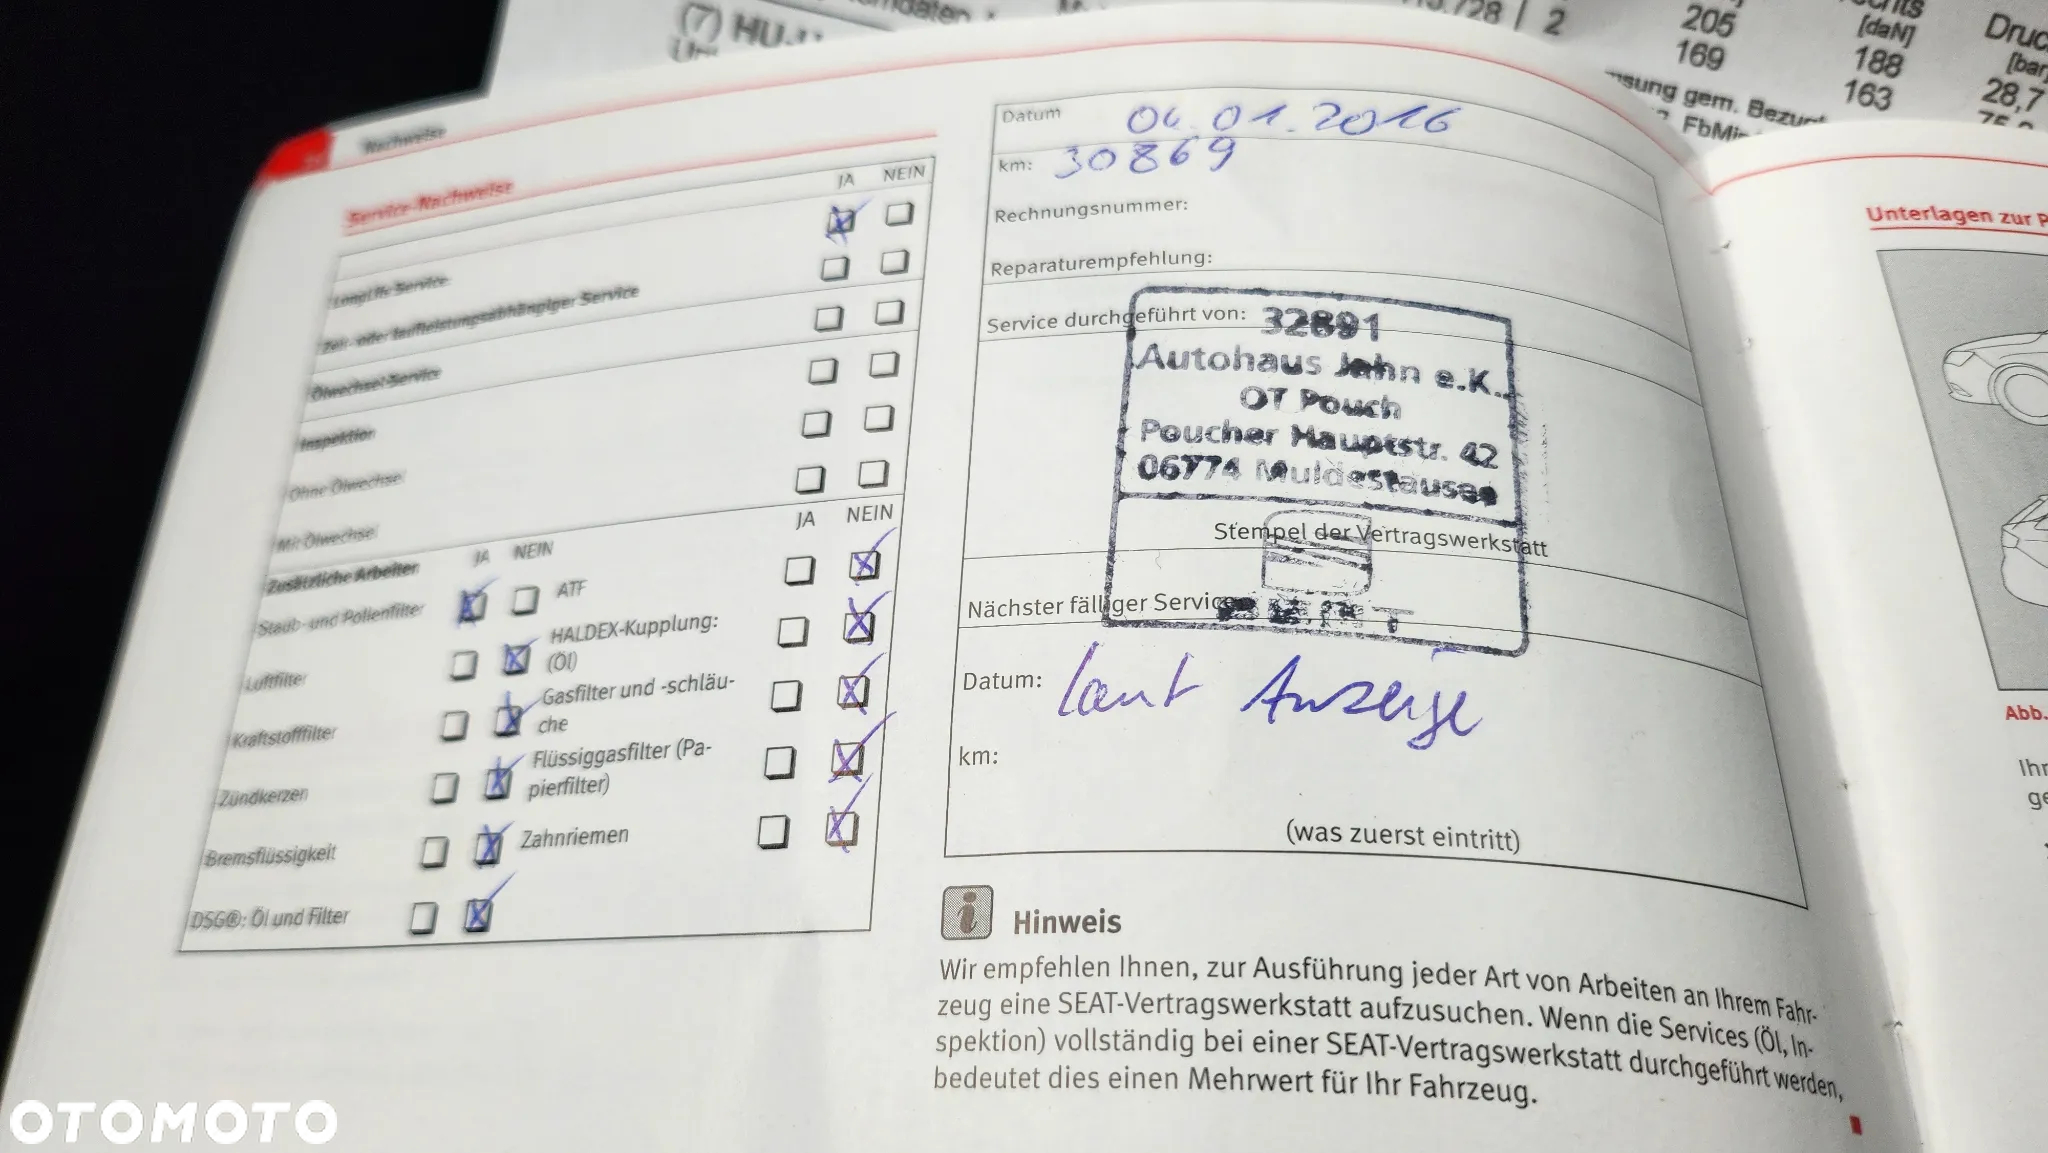 (7) HU-
128 | 2
205
169
[daN]
188
163
Druc
[bar]
28,7
75,9
gem. Bezu
FbMi
Nachweise
Service-Nachweise
JA NEIN
LongLife Service
Zeit- oder laufleistungsabhängiger Service
Ölwechsel-Service
Inspektion
Ohne Ölwechsel
Mit Ölwechsel
Zusätzliche Arbeiten JA NEIN JA NEIN
Staub- und Pollenfilter
ATF
Luftfilter
HALDEX-Kupplung:
(Öl)
Kraftstofffilter
Gasfilter und -schläu-
che
Zündkerzen
Flüssiggasfilter (Pa-
pierfilter)
Bremsflüssigkeit
Zahnriemen
DSG®: Öl und Filter
Datum 04.01.2016
km: 30869
Rechnungsnummer:
Reparaturempfehlung:
Service durchgeführt von:
32891
Autohaus Jahn e.K.
OT Pouch
Poucher Hauptstr. 42
06774 Muldestausee
Stempel der Vertragswerkstatt
Nächster fälliger Service
Datum: laut Anzeige
km:
(was zuerst eintritt)
i Hinweis
Wir empfehlen Ihnen, zur Ausführung jeder Art von Arbeiten an Ihrem Fahr-
zeug eine SEAT-Vertragswerkstatt aufzusuchen. Wenn die Services (Öl, In-
spektion) vollständig bei einer SEAT-Vertragswerkstatt durchgeführt werden,
bedeutet dies einen Mehrwert für Ihr Fahrzeug.
Unterlagen zur P
Abb.
Ihr
ge
OTOMOTO